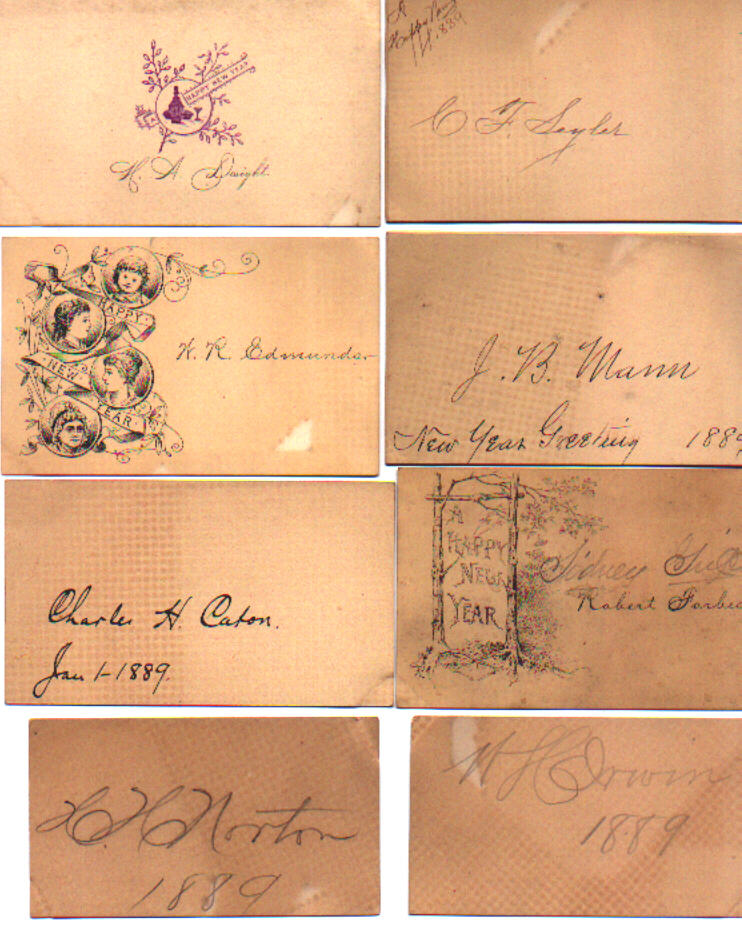 HAPPY NEW YEAR
H. A. Dwight.
A
Happy New
Yr. 1889
C F. Seyler
HAPPY
NEW
YEAR
W. R. Edmunds
J. B. Mann
New Year Greeting 1889
Charles H. Caton.
Jan 1-1889.
A
HAPPY
NEW
YEAR
Sidney
Robert Forbes
H. H. Norton
1889
W H Orwin
1889